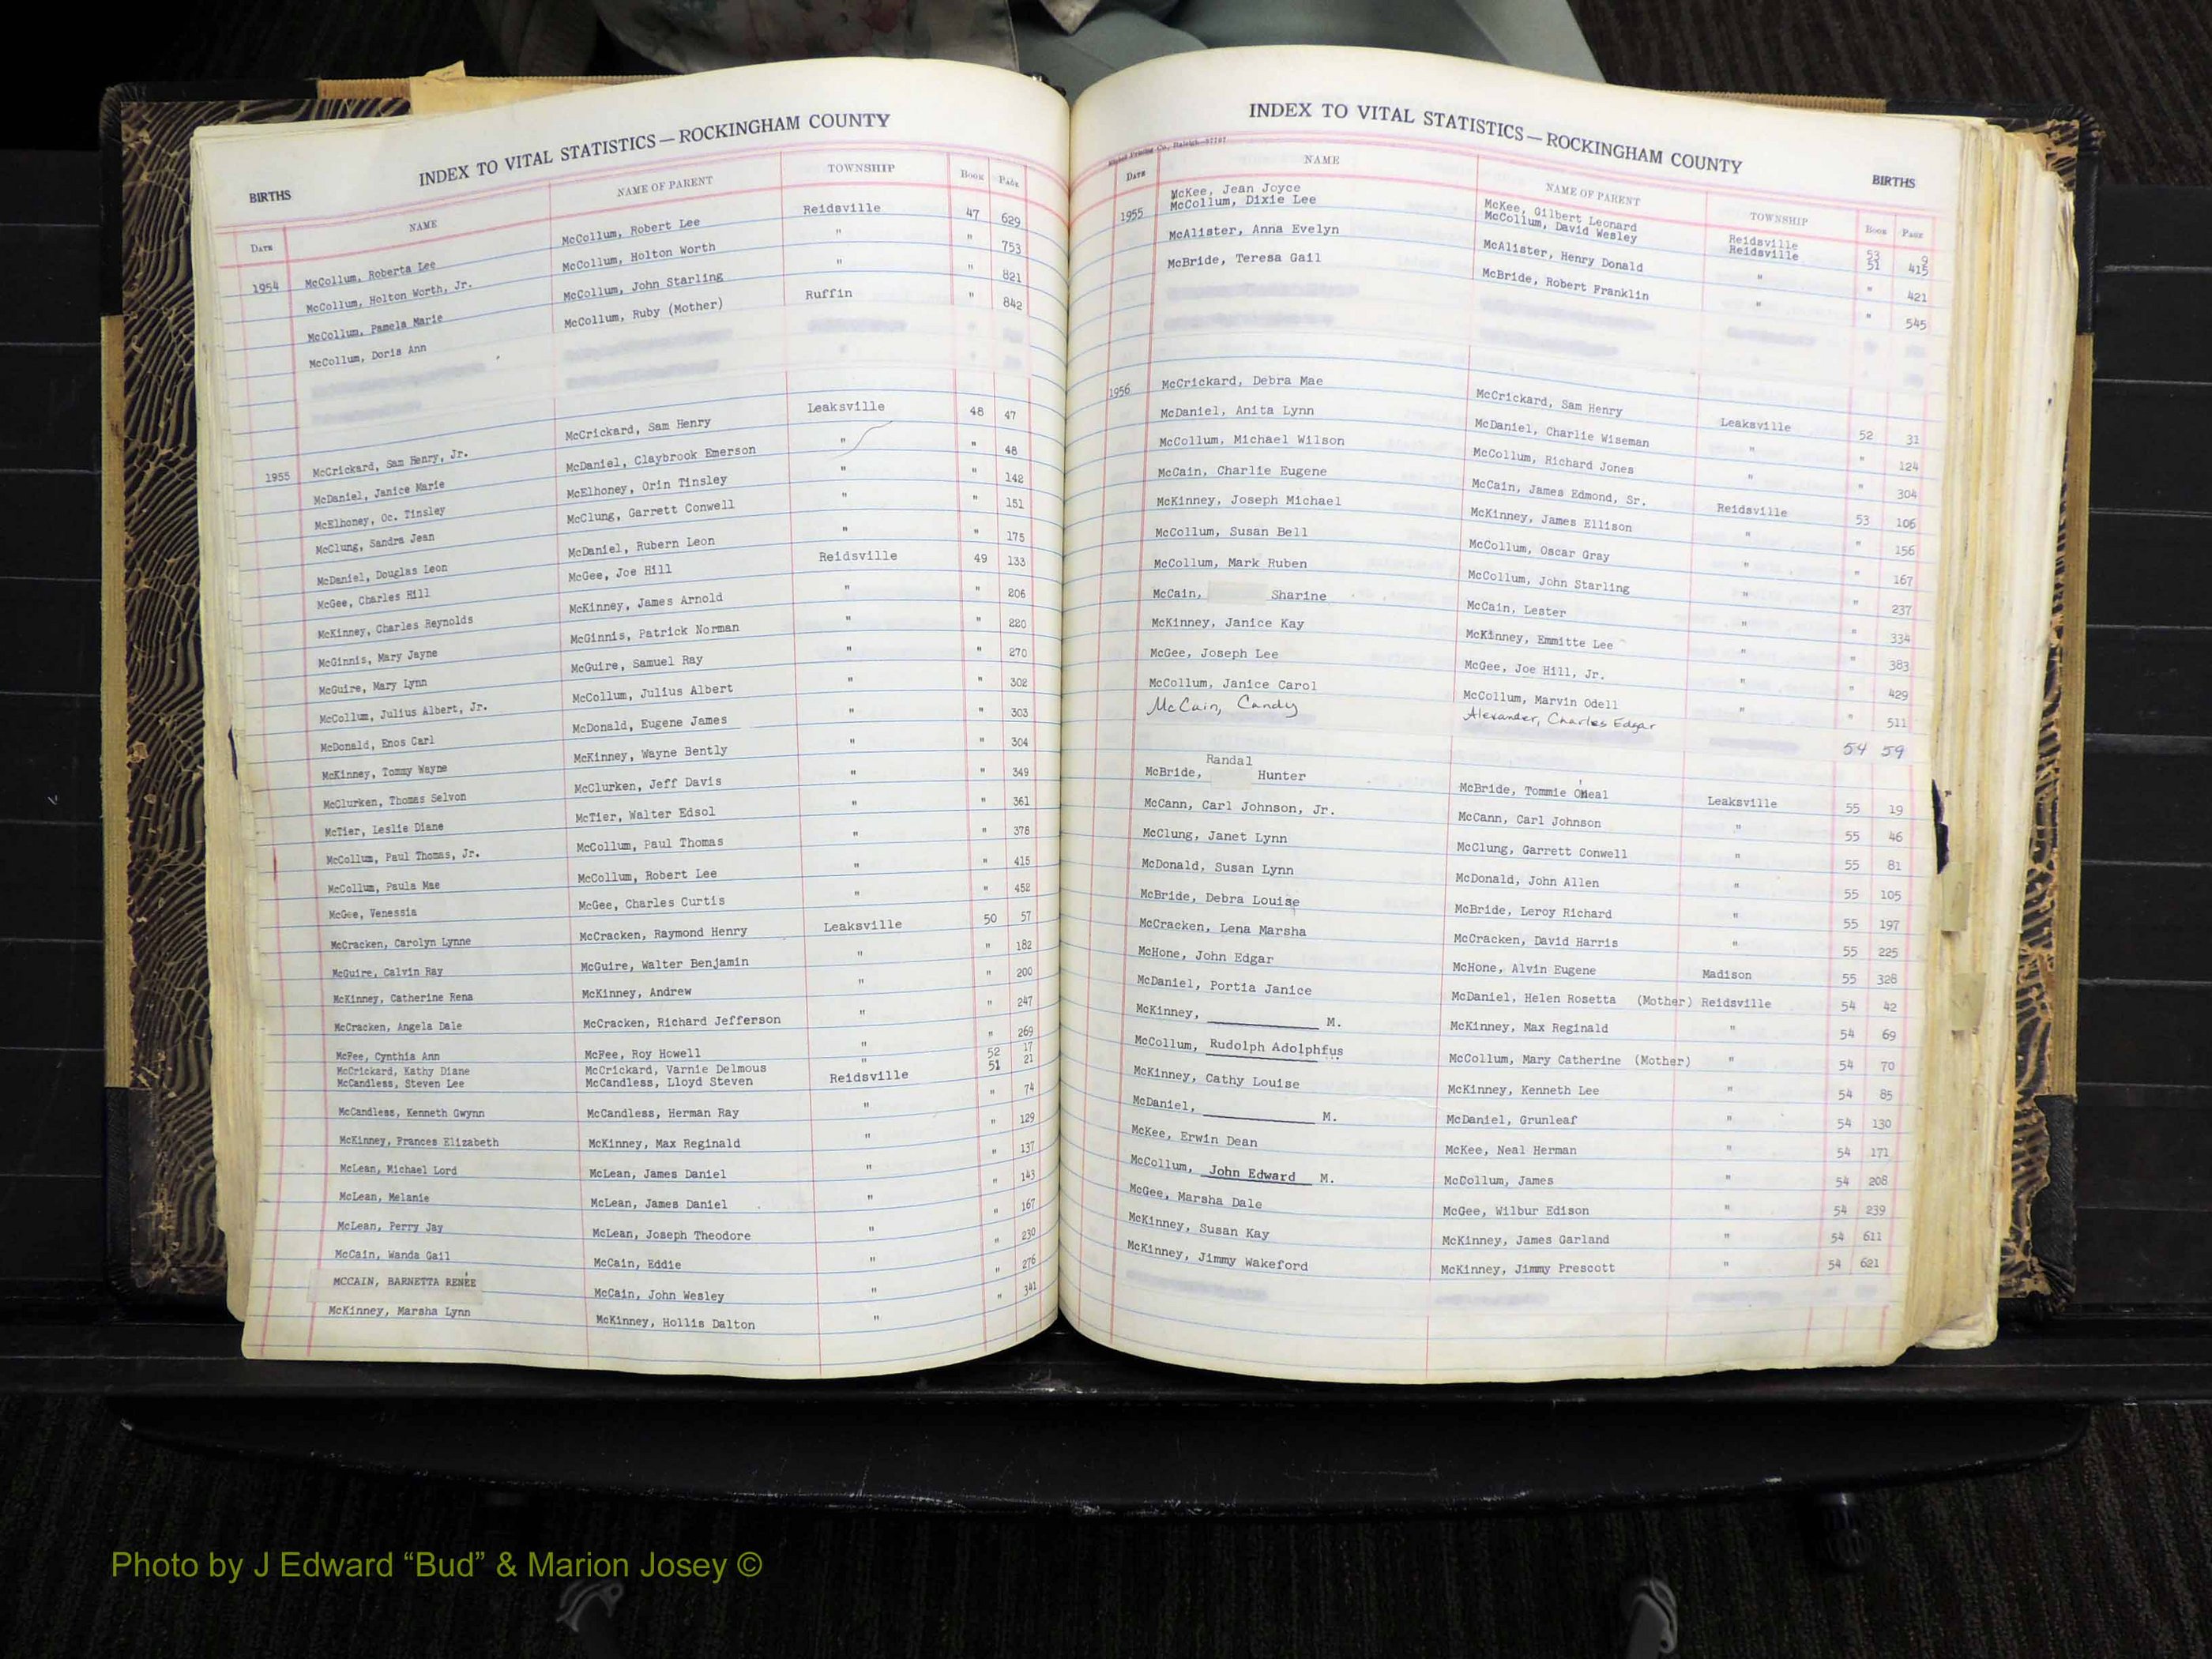 INDEX TO VITAL STATISTICS — ROCKINGHAM COUNTY
BIRTHS
DATE NAME NAME OF PARENT TOWNSHIP BOOK PAGE
1954 McCollum, Roberta Lee McCollum, Robert Lee Reidsville 47 629
McCollum, Holton Worth, Jr. McCollum, Holton Worth " " 753
McCollum, Pamela Marie McCollum, John Starling " " 821
McCollum, Doris Ann McCollum, Ruby (Mother) Ruffin " 842
1955 McCrickard, Sam Henry, Jr. McCrickard, Sam Henry Leaksville 48 47
McDaniel, Janice Marie McDaniel, Claybrook Emerson " " 48
McElhoney, Oc. Tinsley McElhoney, Orin Tinsley " " 142
McClung, Sandra Jean McClung, Garrett Conwell " " 151
McDaniel, Douglas Leon McDaniel, Rubern Leon " " 175
McGee, Charles Hill McGee, Joe Hill Reidsville 49 133
McKinney, Charles Reynolds McKinney, James Arnold " " 206
McGinnis, Mary Jayne McGinnis, Patrick Norman " " 220
McGuire, Mary Lynn McGuire, Samuel Ray " " 270
McCollum, Julius Albert, Jr. McCollum, Julius Albert " " 302
McDonald, Enos Carl McDonald, Eugene James " " 303
McKinney, Tommy Wayne McKinney, Wayne Bently " " 304
McClurken, Thomas Selvon McClurken, Jeff Davis " " 349
McTier, Leslie Diane McTier, Walter Edsol " " 361
McCollum, Paul Thomas, Jr. McCollum, Paul Thomas " " 378
McCollum, Paula Mae McCollum, Robert Lee " " 415
McGee, Venessia McGee, Charles Curtis " " 452
McCracken, Carolyn Lynne McCracken, Raymond Henry Leaksville 50 57
McGuire, Calvin Ray McGuire, Walter Benjamin " " 182
McKinney, Catherine Rena McKinney, Andrew " " 200
McCracken, Angela Dale McCracken, Richard Jefferson " " 247
McFee, Cynthia Ann McFee, Roy Howell " " 269
McCrickard, Kathy Diane McCrickard, Varnie Delmous " 52 17
McCandless, Steven Lee McCandless, Lloyd Steven Reidsville 51 21
McCandless, Kenneth Gwynn McCandless, Herman Ray " " 74
McKinney, Frances Elizabeth McKinney, Max Reginald " " 129
McLean, Michael Lord McLean, James Daniel " " 137
McLean, Melanie McLean, James Daniel " " 143
McLean, Perry Jay McLean, Joseph Theodore " " 167
McCain, Wanda Gail McCain, Eddie " " 230
MCCAIN, BARNETTA RENÉE McCain, John Wesley " " 276
McKinney, Marsha Lynn McKinney, Hollis Dalton " " 341
INDEX TO VITAL STATISTICS — ROCKINGHAM COUNTY
BIRTHS
DATE NAME NAME OF PARENT TOWNSHIP BOOK PAGE
McKee, Jean Joyce McKee, Gilbert Leonard Reidsville 53 9
1955 McCollum, Dixie Lee McCollum, David Wesley Reidsville 51 415
McAlister, Anna Evelyn McAlister, Henry Donald " " 421
McBride, Teresa Gail McBride, Robert Franklin " " 545
1956 McCrickard, Debra Mae McCrickard, Sam Henry Leaksville 52 31
McDaniel, Anita Lynn McDaniel, Charlie Wiseman " " 124
McCollum, Michael Wilson McCollum, Richard Jones " " 304
McCain, Charlie Eugene McCain, James Edmond, Sr. Reidsville 53 106
McKinney, Joseph Michael McKinney, James Ellison " " 156
McCollum, Susan Bell McCollum, Oscar Gray " " 167
McCollum, Mark Ruben McCollum, John Starling " " 237
McCain, Sharine McCain, Lester " " 334
McKinney, Janice Kay McKinney, Emmitte Lee " " 383
McGee, Joseph Lee McGee, Joe Hill, Jr. " " 429
McCollum, Janice Carol McCollum, Marvin Odell " " 511
McCain, Candy Alexander, Charles Edgar 54 59
Randal
McBride, Hunter McBride, Tommie O'Neal Leaksville 55 19
McCann, Carl Johnson, Jr. McCann, Carl Johnson " 55 46
McClung, Janet Lynn McClung, Garrett Conwell " 55 81
McDonald, Susan Lynn McDonald, John Allen " 55 105
McBride, Debra Louise McBride, Leroy Richard " 55 197
McCracken, Lena Marsha McCracken, David Harris " 55 225
McHone, John Edgar McHone, Alvin Eugene Madison 55 328
McDaniel, Portia Janice McDaniel, Helen Rosetta (Mother) Reidsville 54 42
McKinney, M. McKinney, Max Reginald " 54 69
McCollum, Rudolph Adolphfus McCollum, Mary Catherine (Mother) " 54 70
McKinney, Cathy Louise McKinney, Kenneth Lee " 54 85
McDaniel, M. McDaniel, Grunleaf " 54 130
McKee, Erwin Dean McKee, Neal Herman " 54 171
McCollum, John Edward M. McCollum, James " 54 208
McGee, Marsha Dale McGee, Wilbur Edison " 54 239
McKinney, Susan Kay McKinney, James Garland " 54 611
McKinney, Jimmy Wakeford McKinney, Jimmy Prescott " 54 621
Photo by J Edward “Bud” & Marion Josey ©